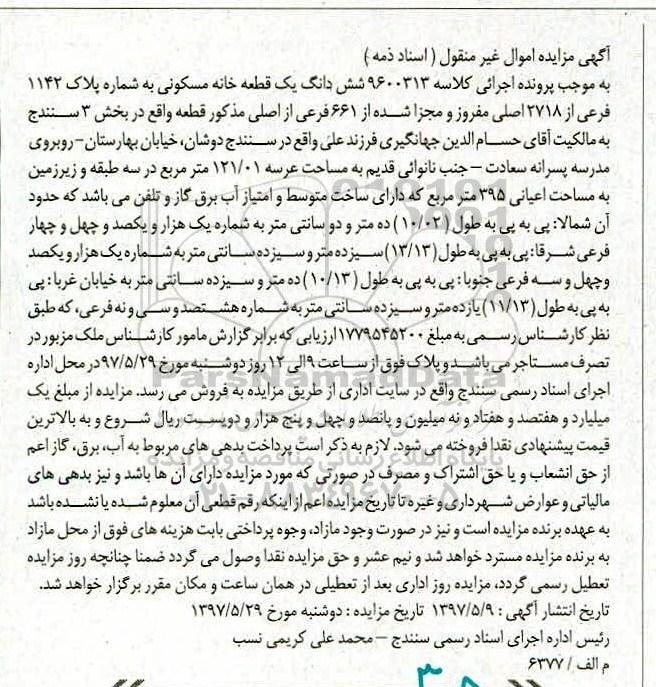 آگهی مزایده اموال غیر منقول ( اسناد ذمه )
به موجب پرونده اجرائی کلاسه ۹۶۰۰۳۱۳ شش دانگ یک قطعه خانه مسکونی به شماره پلاک ۱۱۴۲
فرعی از ۲۷۱۸ اصلی مفروز و مجزا شده از ۶۶۱ فرعی از اصلی مذکور قطعه واقع در بخش ۳ سنندج
به مالکیت آقای حسام الدین جهانگیری فرزند علی واقع در سنندج دوشان، خیابان بهارستان - روبروی
مدرسه پسرانه سعادت – جنب نانوائی قدیم به مساحت عرسه ۱۲۱/۰۱ متر مربع در سه طبقه و زیرزمین
به مساحت اعیانی ۳۹۵ متر مربع که دارای ساخت متوسط و امتیاز آب برق گاز و تلفن می باشد که حدود
آن شمالا: پی به پی به طول (۱۰/۰۲) ده متر و دو سانتی متر به شماره یک هزار و یکصد و چهل و چهار
فرعی شرقا: پی به پی به طول (۱۳/۱۳) سیزده متر و سیزده سانتی متر به شماره یک هزار و یکصد
و چهل و سه فرعی جنوبا: پی به پی به طول (۱۰/۱۳) ده متر و سیزده سانتی متر به خیابان غربا: پی
به پی به طول (۱۱/۱۳) یازده متر و سیزده سانتی متر به شماره هشتصد و سی و نه فرعی، که طبق
نظر کارشناس رسمی به مبلغ ۱۷۷۹۵۴۵۲۰۰ ارزیابی که برابر گزارش مامور کارشناس ملک مزبور در
تصرف مستاجر می باشد و پلاک فوق از ساعت ۹ الی ۱۲ روز دوشنبه مورخ ۹۷/۵/۲۹ در محل اداره
اجرای اسناد رسمی سنندج واقع در سایت اداری از طریق مزایده به فروش می رسد. مزایده از مبلغ یک
میلیارد و هفتصد و هفتاد و نه میلیون و پانصد و چهل و پنج هزار و دویست ریال شروع و به بالاترین
قیمت پیشنهادی نقدا فروخته می شود. لازم به ذکر است پرداخت بدهی های مربوط به آب، برق، گاز اعم
از حق انشعاب و یا حق اشتراک و مصرف در صورتی که مورد مزایده دارای آن ها باشد و نیز بدهی های
مالیاتی و عوارض شهرداری و غیره تا تاریخ مزایده اعم از اینکه رقم قطعی آن معلوم شده یا نشده باشد
به عهده برنده مزایده است و نیز در صورت وجود مازاد، وجوه پرداختی بابت هزینه های فوق از محل مازاد
به برنده مزایده مسترد خواهد شد و نیم عشر و حق مزایده نقدا وصول می گردد ضمنا چنانچه روز مزایده
تعطیل رسمی گردد، مزایده روز اداری بعد از تعطیلی در همان ساعت و مکان مقرر برگزار خواهد شد.
تاریخ انتشار آگهی : ۱۳۹۷/۵/۹ تاریخ مزایده : دوشنبه مورخ ۱۳۹۷/۵/۲۹
رئیس اداره اجرای اسناد رسمی سنندج – محمد علی کریمی نسب
م الف / ۶۳۷۷
ParsNamadData
پایگاه اطلاع رسانی مناقصه و مزایده